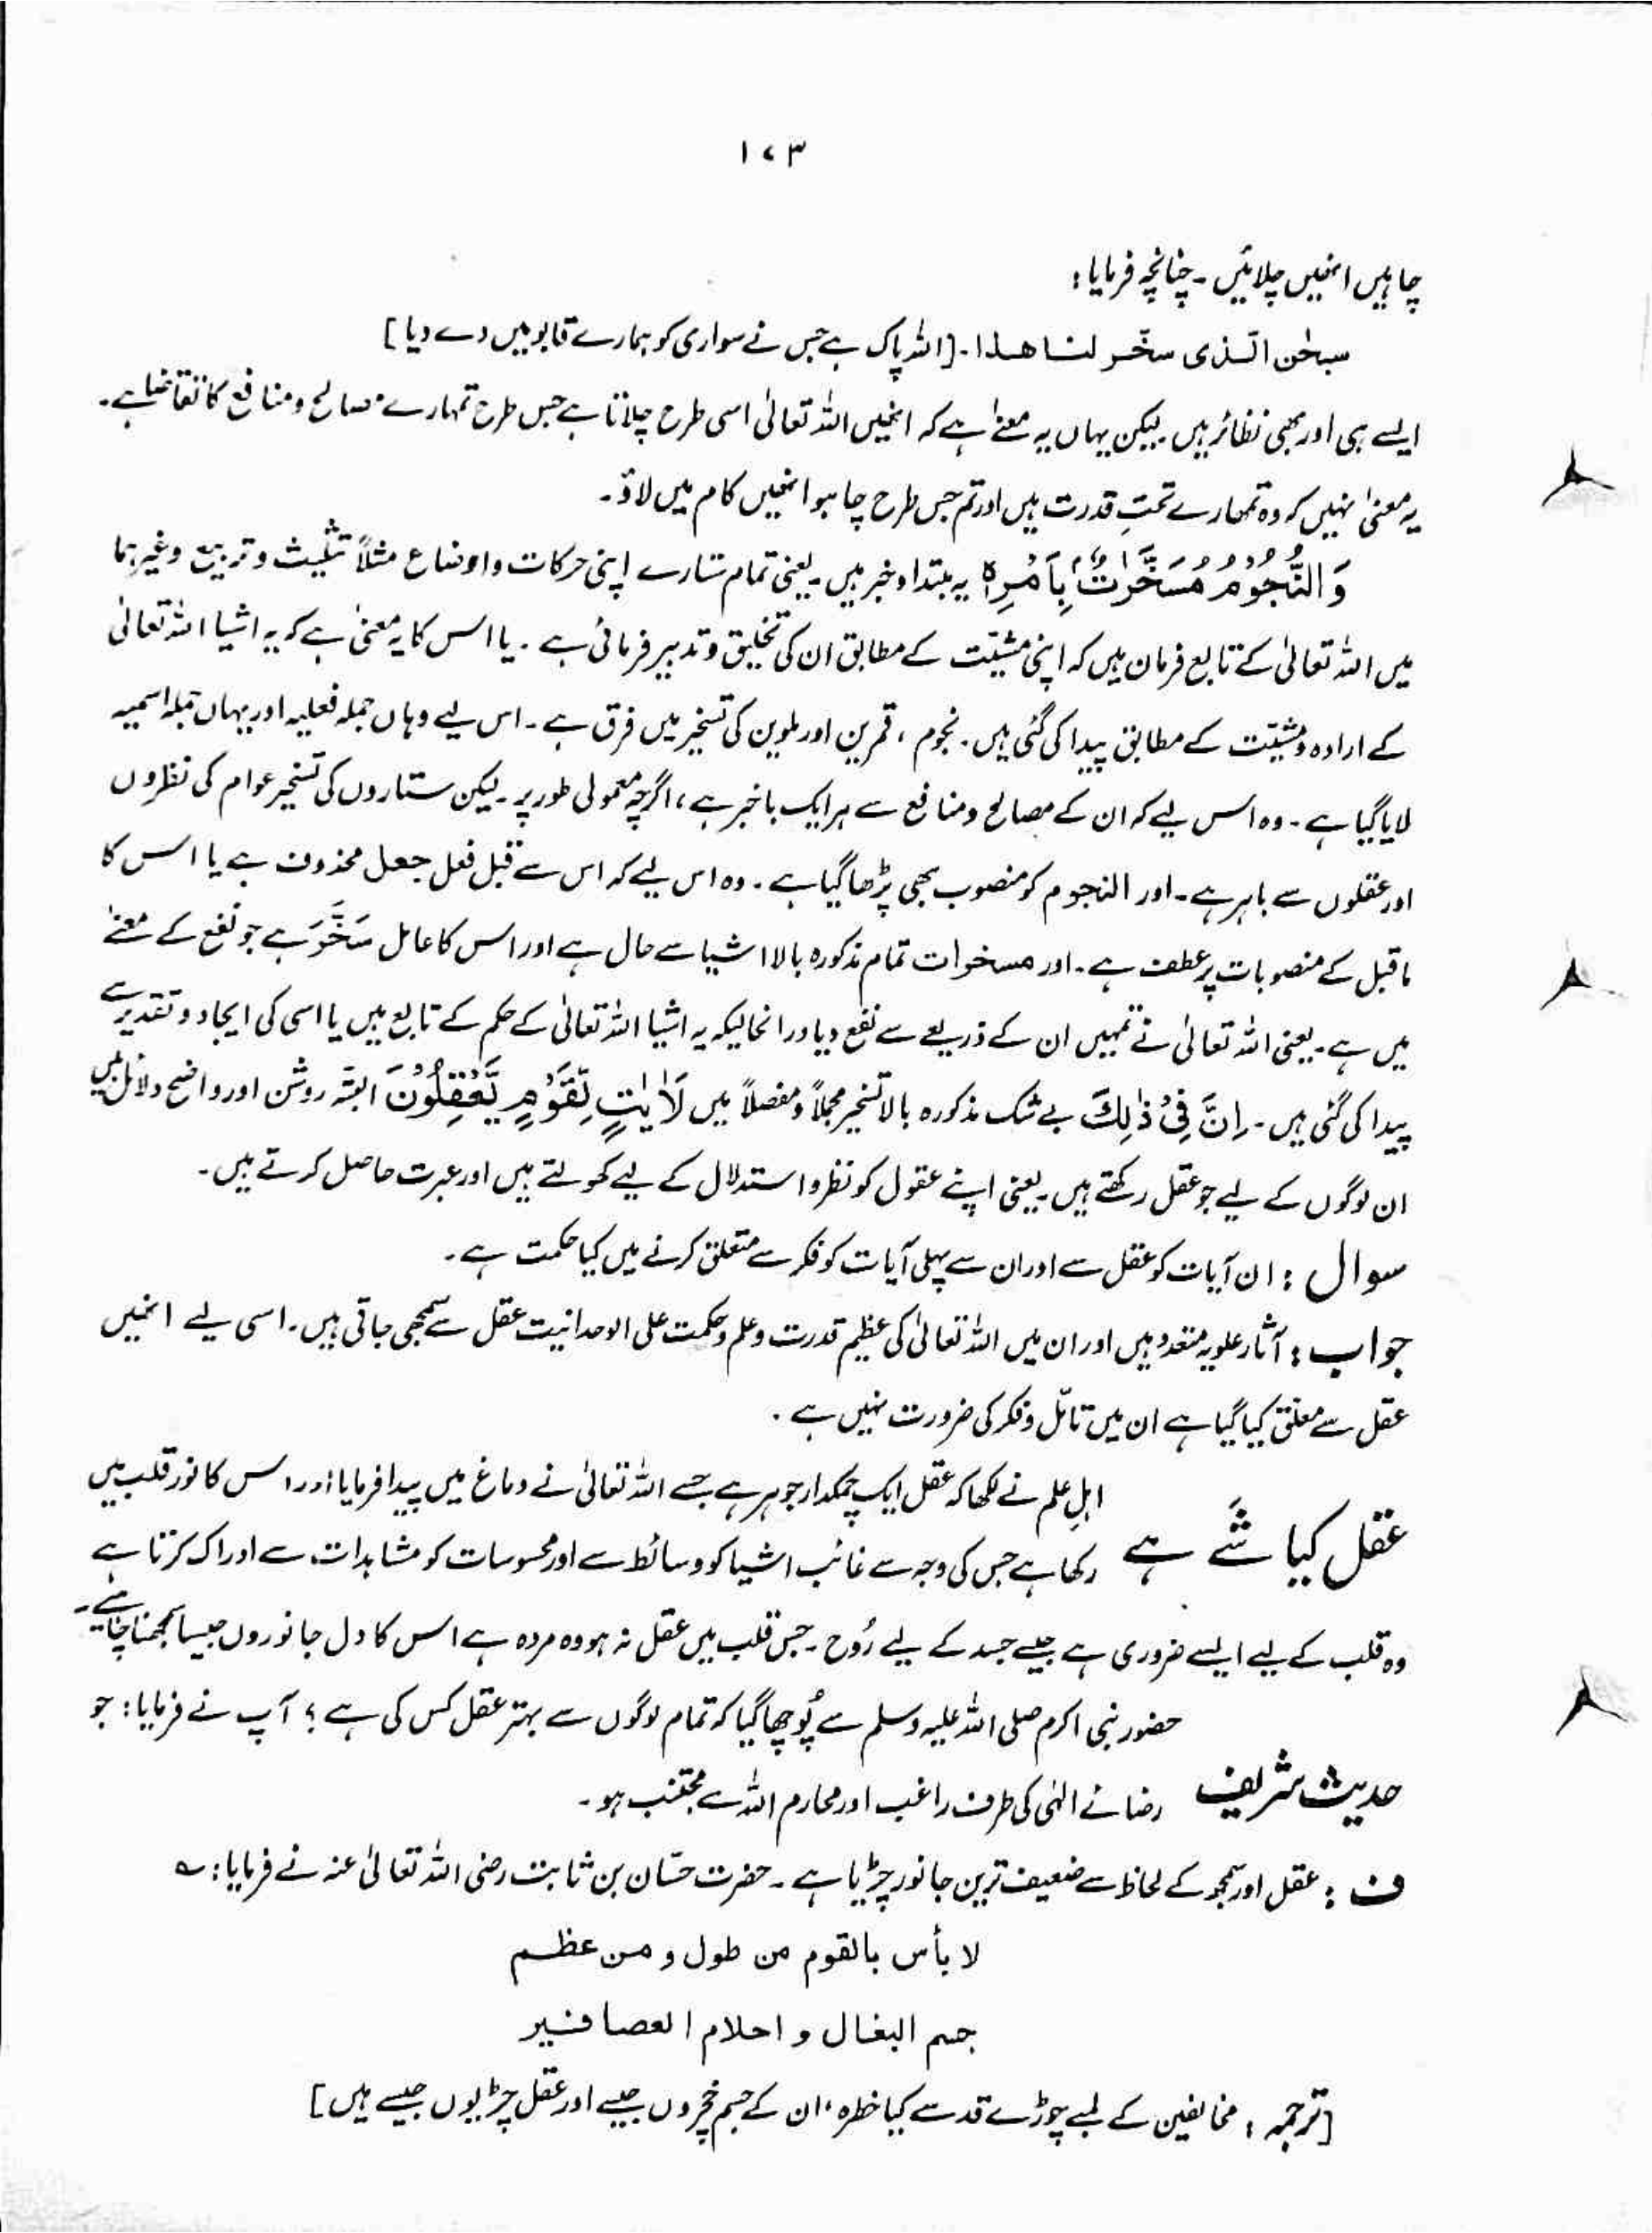 ۱۷۳
چاہیں انھیں چلائیں۔ چنانچہ فرمایا:
سبحٰن الّذی سخّر لنا ھذا۔ [اللہ پاک ہے جس نے سواری کو ہمارے قابو میں دے دیا]
ایسے ہی اور بھی نظائر ہیں لیکن یہاں یہ معنے ہے کہ انھیں اللہ تعالیٰ اسی طرح چلاتا ہے جس طرح تمہارے مصالح و منافع کا تقاضا ہے۔
یہ معنیٰ نہیں کہ وہ تمھارے تحتِ قدرت ہیں اور تم جس طرح چاہو انھیں کام میں لاؤ۔
وَ النُّجُوْمُ مُسَخَّرٰتٌۢ بِاَمْرِہٖ یہ مبتدا و خبر ہیں۔ یعنی تمام ستارے اپنی حرکات و اوضاع مثلاً تثلیث و تربیع وغیرہما
میں اللہ تعالیٰ کے تابع فرمان ہیں کہ اپنی مشیّت کے مطابق ان کی تخلیق و تدبیر فرمائی ہے۔ یا اس کا یہ معنیٰ ہے کہ یہ اشیا اللہ تعالیٰ
کے ارادہ و مشیّت کے مطابق پیدا کی گئی ہیں۔ نجوم ، قمرین اور ملوین کی تسخیر میں فرق ہے۔ اس لیے وہاں جملہ فعلیہ اور یہاں جملہ اسمیہ
لایا گیا ہے۔ وہ اس لیے کہ ان کے مصالح و منافع سے ہر ایک باخبر ہے ، اگرچہ معمولی طور پر۔ لیکن ستاروں کی تسخیر عوام کی نظروں
اور عقلوں سے باہر ہے۔ اور النجوم کو منصوب بھی پڑھا گیا ہے۔ وہ اس لیے کہ اس سے قبل فعل جعل محذوف ہے یا اس کا
ماقبل کے منصوبات پر عطف ہے۔ اور مسخرات تمام مذکورہ بالا اشیا سے حال ہے اور اس کا عامل سَخَّرَ ہے جو نفع کے معنے
میں ہے۔ یعنی اللہ تعالیٰ نے تمہیں ان کے ذریعے سے نفع دیا درانحالیکہ یہ اشیا اللہ تعالیٰ کے حکم کے تابع ہیں یا اسی کی ایجاد و تقدیر سے
پیدا کی گئی ہیں۔ اِنَّ فِیْ ذٰلِکَ بے شک مذکورہ بالا تسخیر مجملاً و مفصلاً میں لَاٰیٰتٍ لِّقَوْمٍ یَّعْقِلُوْنَ البتہ روشن اور واضح دلائل ہیں
ان لوگوں کے لیے جو عقل رکھتے ہیں۔ یعنی اپنے عقول کو نظر و استدلال کے لیے کھولتے ہیں اور عبرت حاصل کرتے ہیں۔
سوال : ان آیات کو عقل سے اور ان سے پہلی آیات کو فکر سے متعلق کرنے میں کیا حکمت ہے۔
جواب : آثار علویہ متعدد ہیں اور ان میں اللہ تعالیٰ کی عظیم قدرت و علم و حکمت علی الوحدانیت عقل سے سمجھی جاتی ہیں۔ اسی لیے انھیں
عقل سے معلق کیا گیا ہے ان میں تامّل و فکر کی ضرورت نہیں ہے۔
اہلِ علم نے لکھا کہ عقل ایک چمکدار جوہر ہے جسے اللہ تعالیٰ نے دماغ میں پیدا فرمایا اور اس کا نور قلب میں
عقل کیا شَے ہے رکھا ہے جس کی وجہ سے غائب اشیا کو وسائط سے اور محسوسات کو مشاہدات سے ادراک کرتا ہے
وہ قلب کے لیے ایسے ضروری ہے جیسے جسد کے لیے رُوح۔ جس قلب میں عقل نہ ہو وہ مردہ ہے اس کا دل جانوروں جیسا سمجھنا چاہیے۔
حضور نبی اکرم صلی اللہ علیہ وسلم سے پُوچھا گیا کہ تمام لوگوں سے بہتر عقل کس کی ہے ؟ آپ نے فرمایا : جو
حدیث شریف رضائے الٰہی کی طرف راغب اور محارم اللہ سے مجتنب ہو۔
ف : عقل اور سمجھ کے لحاظ سے ضعیف ترین جانور چڑیا ہے۔ حضرت حسّان بن ثابت رضی اللہ تعالیٰ عنہ نے فرمایا : ؎
لا بأس بالقوم من طول و من عظم
جسم البغال و احلام العصافیر
[ترجمہ : مخالفین کے لمبے چوڑے قد سے کیا خطرہ ، ان کے جسم خچروں جیسے اور عقل چڑیوں جیسے ہیں]